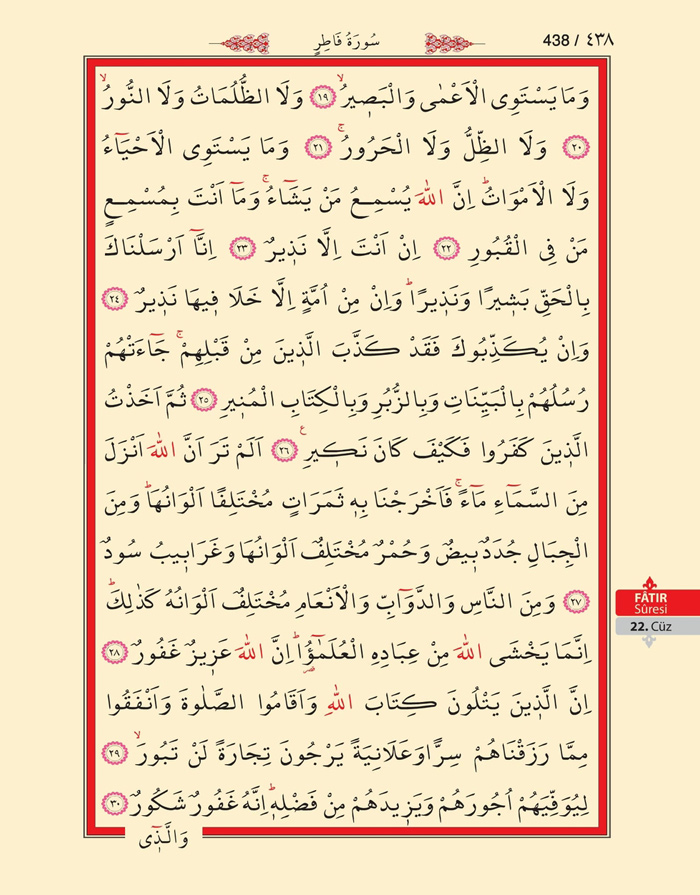 438 / ٤٣٨
سُورَةُ فَاطِرٍ
وَمَا يَسْتَوِي الْاَعْمٰى وَالْبَص۪يرُۙ ﴿١٩﴾ وَلَا الظُّلُمَاتُ وَلَا النُّورُۙ
﴿٢٠﴾ وَلَا الظِّلُّ وَلَا الْحَرُورُۚ ﴿٢١﴾ وَمَا يَسْتَوِي الْاَحْيَٓاءُ
وَلَا الْاَمْوَاتُۜ اِنَّ اللّٰهَ يُسْمِعُ مَنْ يَشَٓاءُۚ وَمَٓا اَنْتَ بِمُسْمِعٍ
مَنْ فِي الْقُبُورِ ﴿٢٢﴾ اِنْ اَنْتَ اِلَّا نَذ۪يرٌ ﴿٢٣﴾ اِنَّٓا اَرْسَلْنَاكَ
بِالْحَقِّ بَش۪يرًا وَنَذ۪يرًاۜ وَاِنْ مِنْ اُمَّةٍ اِلَّا خَلَا ف۪يهَا نَذ۪يرٌ ﴿٢٤﴾
وَاِنْ يُكَذِّبُوكَ فَقَدْ كَذَّبَ الَّذ۪ينَ مِنْ قَبْلِهِمْۚ جَٓاءَتْهُمْ
رُسُلُهُمْ بِالْبَيِّنَاتِ وَبِالزُّبُرِ وَبِالْكِتَابِ الْمُن۪يرِ ﴿٢٥﴾ ثُمَّ اَخَذْتُ
الَّذ۪ينَ كَفَرُوا فَكَيْفَ كَانَ نَك۪يرِ۟ ﴿٢٦﴾ اَلَمْ تَرَ اَنَّ اللّٰهَ اَنْزَلَ
مِنَ السَّمَٓاءِ مَٓاءًۚ فَاَخْرَجْنَا بِه۪ ثَمَرَاتٍ مُخْتَلِفًا اَلْوَانُهَاۜ وَمِنَ
الْجِبَالِ جُدَدٌ ب۪يضٌ وَحُمْرٌ مُخْتَلِفٌ اَلْوَانُهَا وَغَرَاب۪يبُ سُودٌ
﴿٢٧﴾ وَمِنَ النَّاسِ وَالدَّوَٓابِّ وَالْاَنْعَامِ مُخْتَلِفٌ اَلْوَانُهُ كَذٰلِكَۜ
اِنَّمَا يَخْشَى اللّٰهَ مِنْ عِبَادِهِ الْعُلَمٰٓؤُ۬اۜ اِنَّ اللّٰهَ عَز۪يزٌ غَفُورٌ ﴿٢٨﴾
اِنَّ الَّذ۪ينَ يَتْلُونَ كِتَابَ اللّٰهِ وَاَقَامُوا الصَّلٰوةَ وَاَنْفَقُوا
مِمَّا رَزَقْنَاهُمْ سِرًّا وَعَلَانِيَةً يَرْجُونَ تِجَارَةً لَنْ تَبُورَۙ ﴿٢٩﴾
لِيُوَفِّيَهُمْ اُجُورَهُمْ وَيَز۪يدَهُمْ مِنْ فَضْلِه۪ۜ اِنَّهُ غَفُورٌ شَكُورٌ ﴿٣٠﴾
وَالَّذ۪ٓي
FÂTIR
Sûresi
22. Cüz